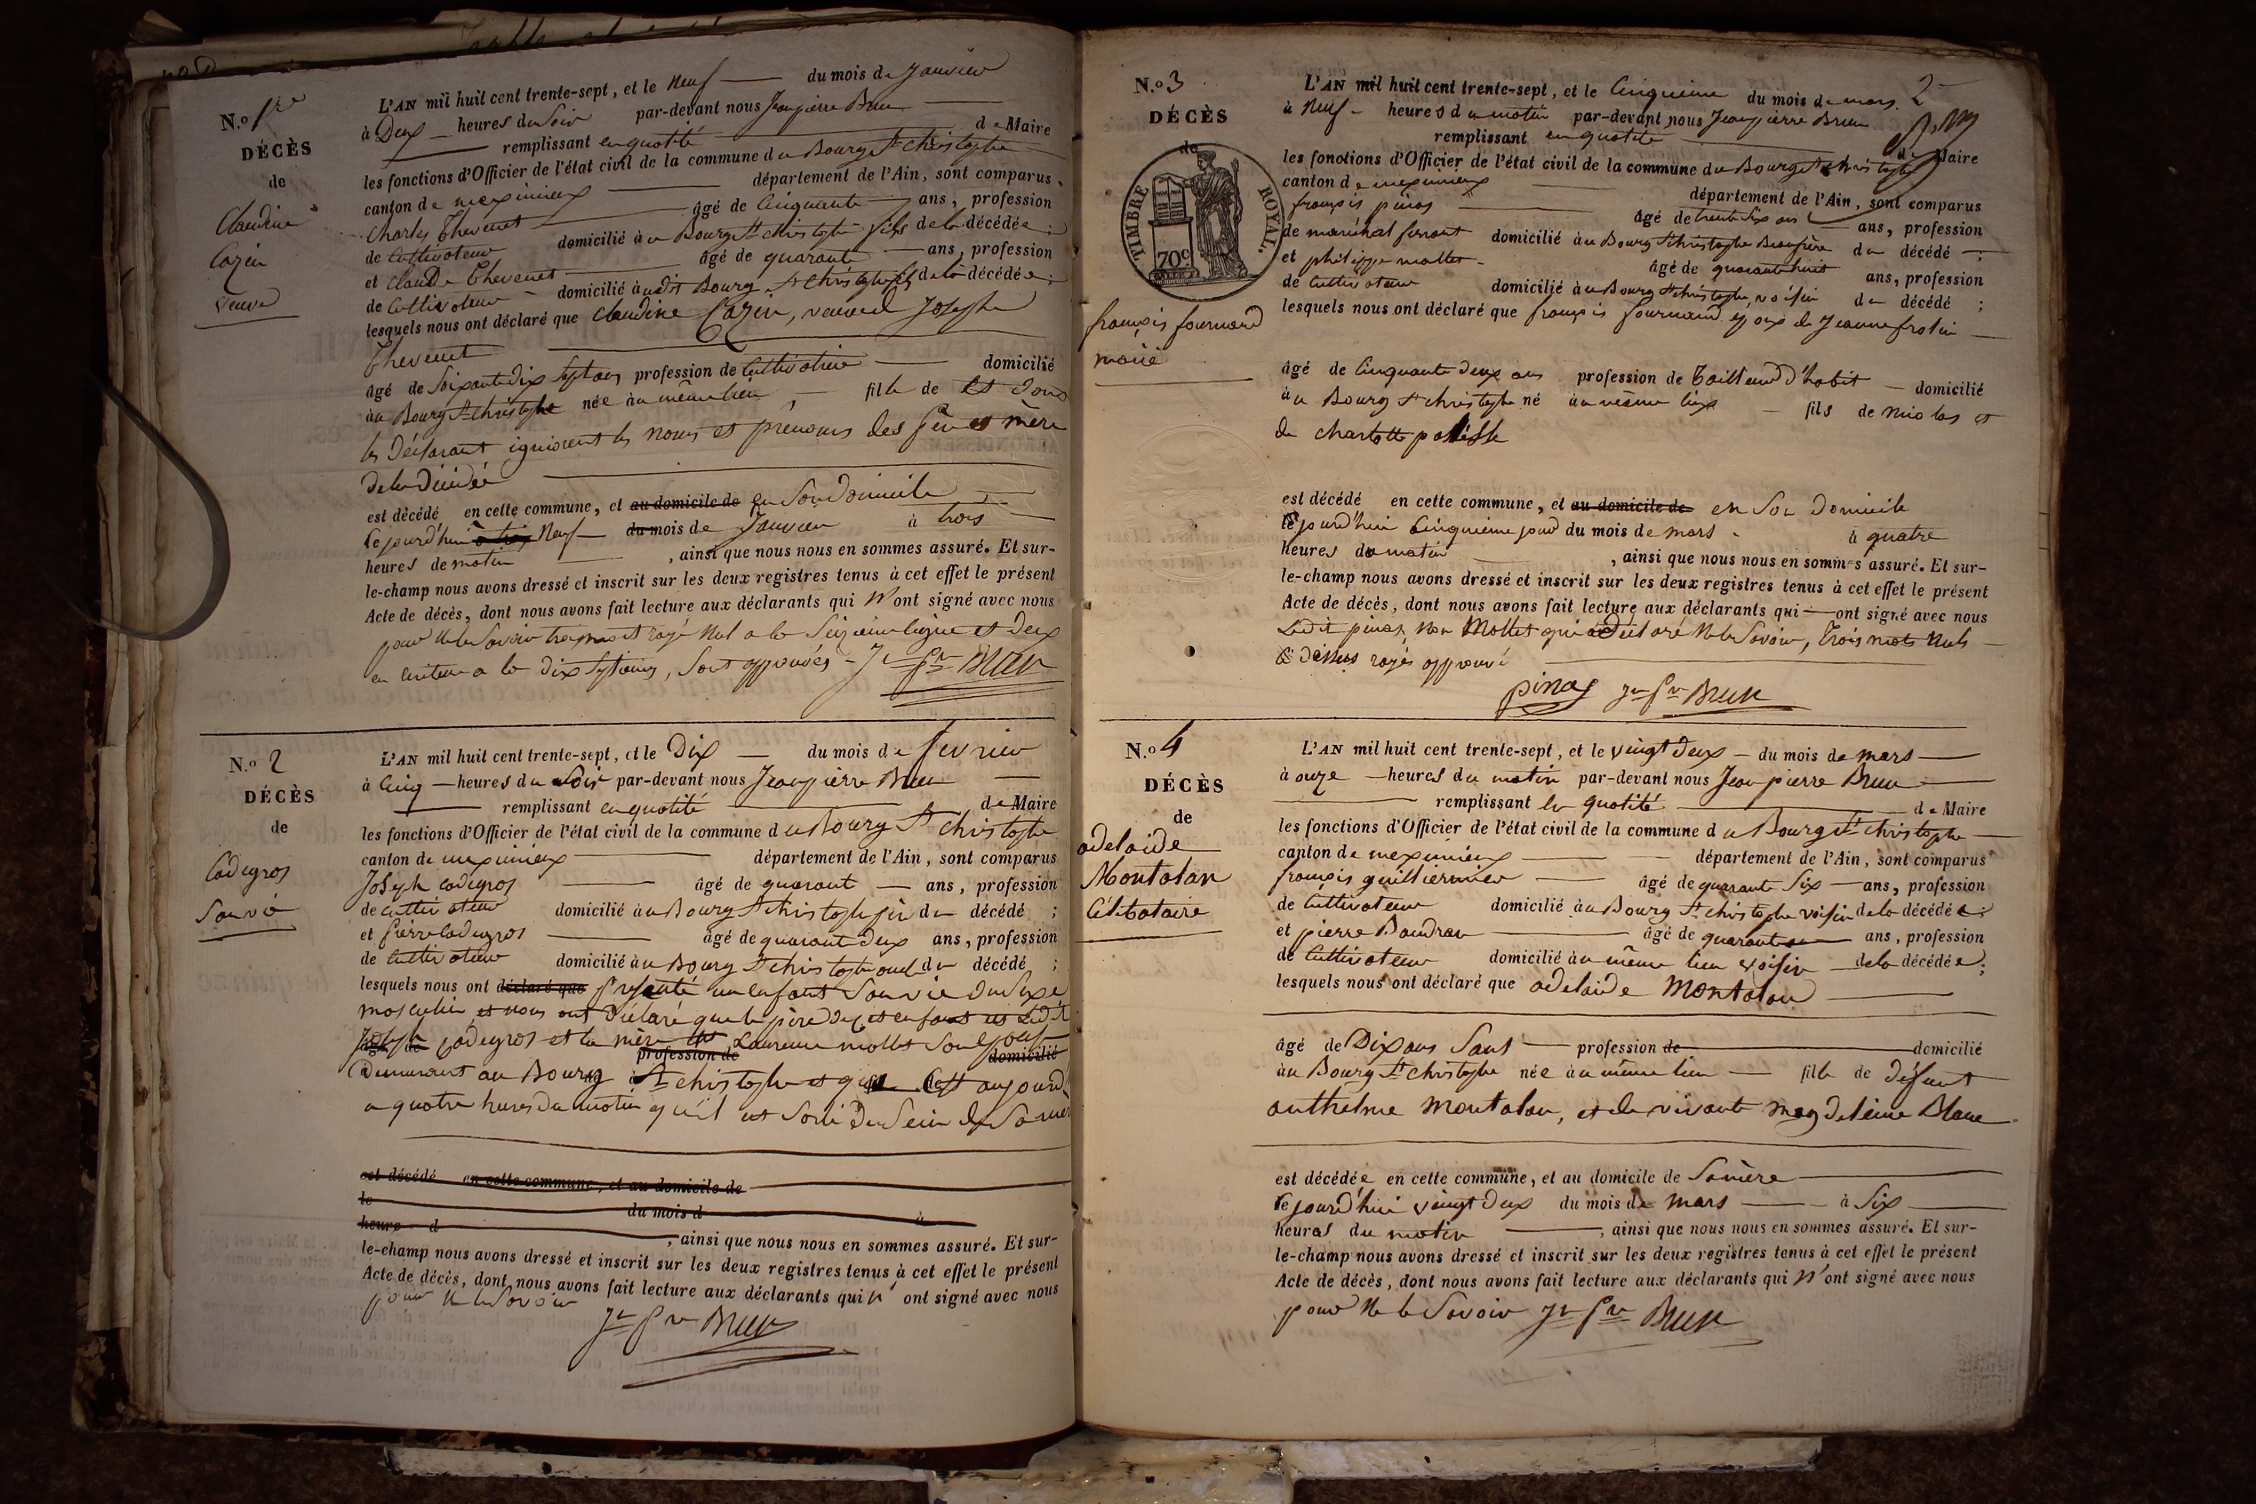 N.o 1re
DÉCÈS
de
Claudine
Cozin
veuve
L'AN mil huit cent trente-sept, et le Neuf du mois de Janvier
à Deux heures du Soir par-devant nous Jean pierre Brun
remplissant en qualité de Maire
les fonctions d'Officier de l'état civil de la commune du Bourg St christophe
canton de meximieux département de l'Ain, sont comparus
Charles Thevenet âgé de Cinquante ans, profession
de Cultivateur domicilié à u Bourg St christophe fils de la décédée ;
et Claude Thevenet âgé de quarante ans, profession
de Cultivateur domicilié à udit Bourg St christophe fils de la décédée ;
lesquels nous ont déclaré que Claudine Cozin, veuve de Joseph
Thevenet
âgé de Soixante dix Sept ans profession de Cultivatrice domicilié
à u Bourg St christophe née à u même lieu fille de et dont
les Déclarant ignorent les noms et prénoms des père et mère
de la Décédée
est décédé en cette commune, et au domicile de en Son Domicile
le jourd'hui Neuf du mois de Janvier à trois
heures de matin , ainsi que nous nous en sommes assuré. Et sur-
le-champ nous avons dressé et inscrit sur les deux registres tenus à cet effet le présent
Acte de décès, dont nous avons fait lecture aux déclarants qui n'ont signé avec nous
pour Ne le Savoir trois mots rayé Nul a la Seizieme ligne et deux
a la dix Septieme, Sont approuvés Jn Pre Brun
N.o 2
DÉCÈS
de
Cadegros
Sans vie
L'AN mil huit cent trente-sept, et le Dix du mois de fevrier
à Cinq heures du Soir par-devant nous Jean pierre Brun
remplissant en qualité de Maire
les fonctions d'Officier de l'état civil de la commune du Bourg St Christophe
canton de meximieux département de l'Ain, sont comparus
Joseph Cadegros âgé de quarante ans, profession
de Cultivateur domicilié à u Bourg St christophe père du décédé ;
et pierre Cadegros âgé de quarante deux ans, profession
de Cultivateur domicilié à u Bourg St christophe oncle du décédé ;
lesquels nous ont déclaré que présenté un Enfant Sans vie du Sexe
masculin et nous ont Déclaré que le père du Cet enfant est Ledit
Joseph Cadegros et la mère est Laurence mollet Son Epouse
âgé de profession de domicilié
Demeurant au Bourg St christophe et que C'est aujourd
a quatre heures du matin qu'il est Sorti du Sein de Sa mère
est décédé en cette commune, et au domicile de
le du mois d à
heure d , ainsi que nous nous en sommes assuré. Et sur-
le-champ nous avons dressé et inscrit sur les deux registres tenus à cet effet le présent
Acte de décès, dont nous avons fait lecture aux déclarants qui n'ont signé avec nous
pour Ne le Savoir Jn Pre Brun
2
N.o 3
DÉCÈS
de
TIMBRE ROYAL.
70c
françois fournand
marié
L'AN mil huit cent trente-sept, et le Cinquieme du mois de mars
à Neuf heures du matin par-devant nous Jean pierre Brun
remplissant en qualité de Maire
les fonctions d'Officier de l'état civil de la commune du Bourg St christophe
canton de meximieux département de l'Ain, sont comparus
françois pinas âgé de trente Six ans ans, profession
de maréchal ferrant domicilié à u Bourg St christophe Beaufrère du décédé ;
et philippe mollet âgé de quarante huit ans, profession
de Cultivateur domicilié à u Bourg St christophe, voisin du décédé ;
lesquels nous ont déclaré que françois fournand epoux de Jeanne frolin
âgé de Cinquante deux ans profession de Tailleur d'habit domicilié
à u Bourg St christophe né à u même lieu fils de nicolas et
de Charlotte
est décédé en cette commune, et au domicile de en Son Domicile
le jourd'hui Cinquieme jour du mois de mars à quatre
heures du matin , ainsi que nous nous en sommes assuré. Et sur-
le-champ nous avons dressé et inscrit sur les deux registres tenus à cet effet le présent
Acte de décès, dont nous avons fait lecture aux déclarants qui ont signé avec nous
Ledit pinas, Non Mollet qui a Déclaré Ne le Savoir, Trois mots Nuls
Ci Dessus rayés approuvé
pinas Jn Pre Brun
N.o 4
DÉCÈS
de
adelaide
Montolan
Célibataire
L'AN mil huit cent trente-sept, et le vingt Deux du mois de mars
à onze heures du matin par-devant nous Jean pierre Brun
remplissant en qualité de Maire
les fonctions d'Officier de l'état civil de la commune du Bourg St christophe
canton de meximieux département de l'Ain, sont comparus
françois guilliermier âgé de quarante Six ans, profession
de Cultivateur domicilié à u Bourg St christophe voisin de la décédée ;
et pierre Baudran âgé de quarante ans, profession
de Cultivateur domicilié à u même lieu voisin de la décédée ;
lesquels nous ont déclaré que adelaide Montolan
âgé de Dix ans Sans profession de domicilié
à u Bourg St christophe née à u même lieu fille de défunt
anthelme Montolan, et de vivante magdeleine Blanc
est décédée en cette commune, et au domicile de Sa mère
le jourd'hui vingt deux du mois de mars à Six
heures du matin , ainsi que nous nous en sommes assuré. Et sur-
le-champ nous avons dressé et inscrit sur les deux registres tenus à cet effet le présent
Acte de décès, dont nous avons fait lecture aux déclarants qui N'ont signé avec nous
pour Ne le Savoir Jn Pre Brun